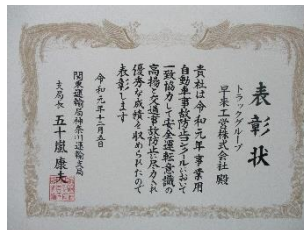 表彰状
トラックグループ
早来工営株式会社 殿
貴社は令和元年事業用
自動車事故防止コンクールにおいて
一致協力して安全運転意識の
高揚と交通事故防止に尽力され
優秀な成績を収められたので
表彰します
令和元年十二月五日
関東運輸局神奈川運輸支局
支局長 五十嵐 康夫